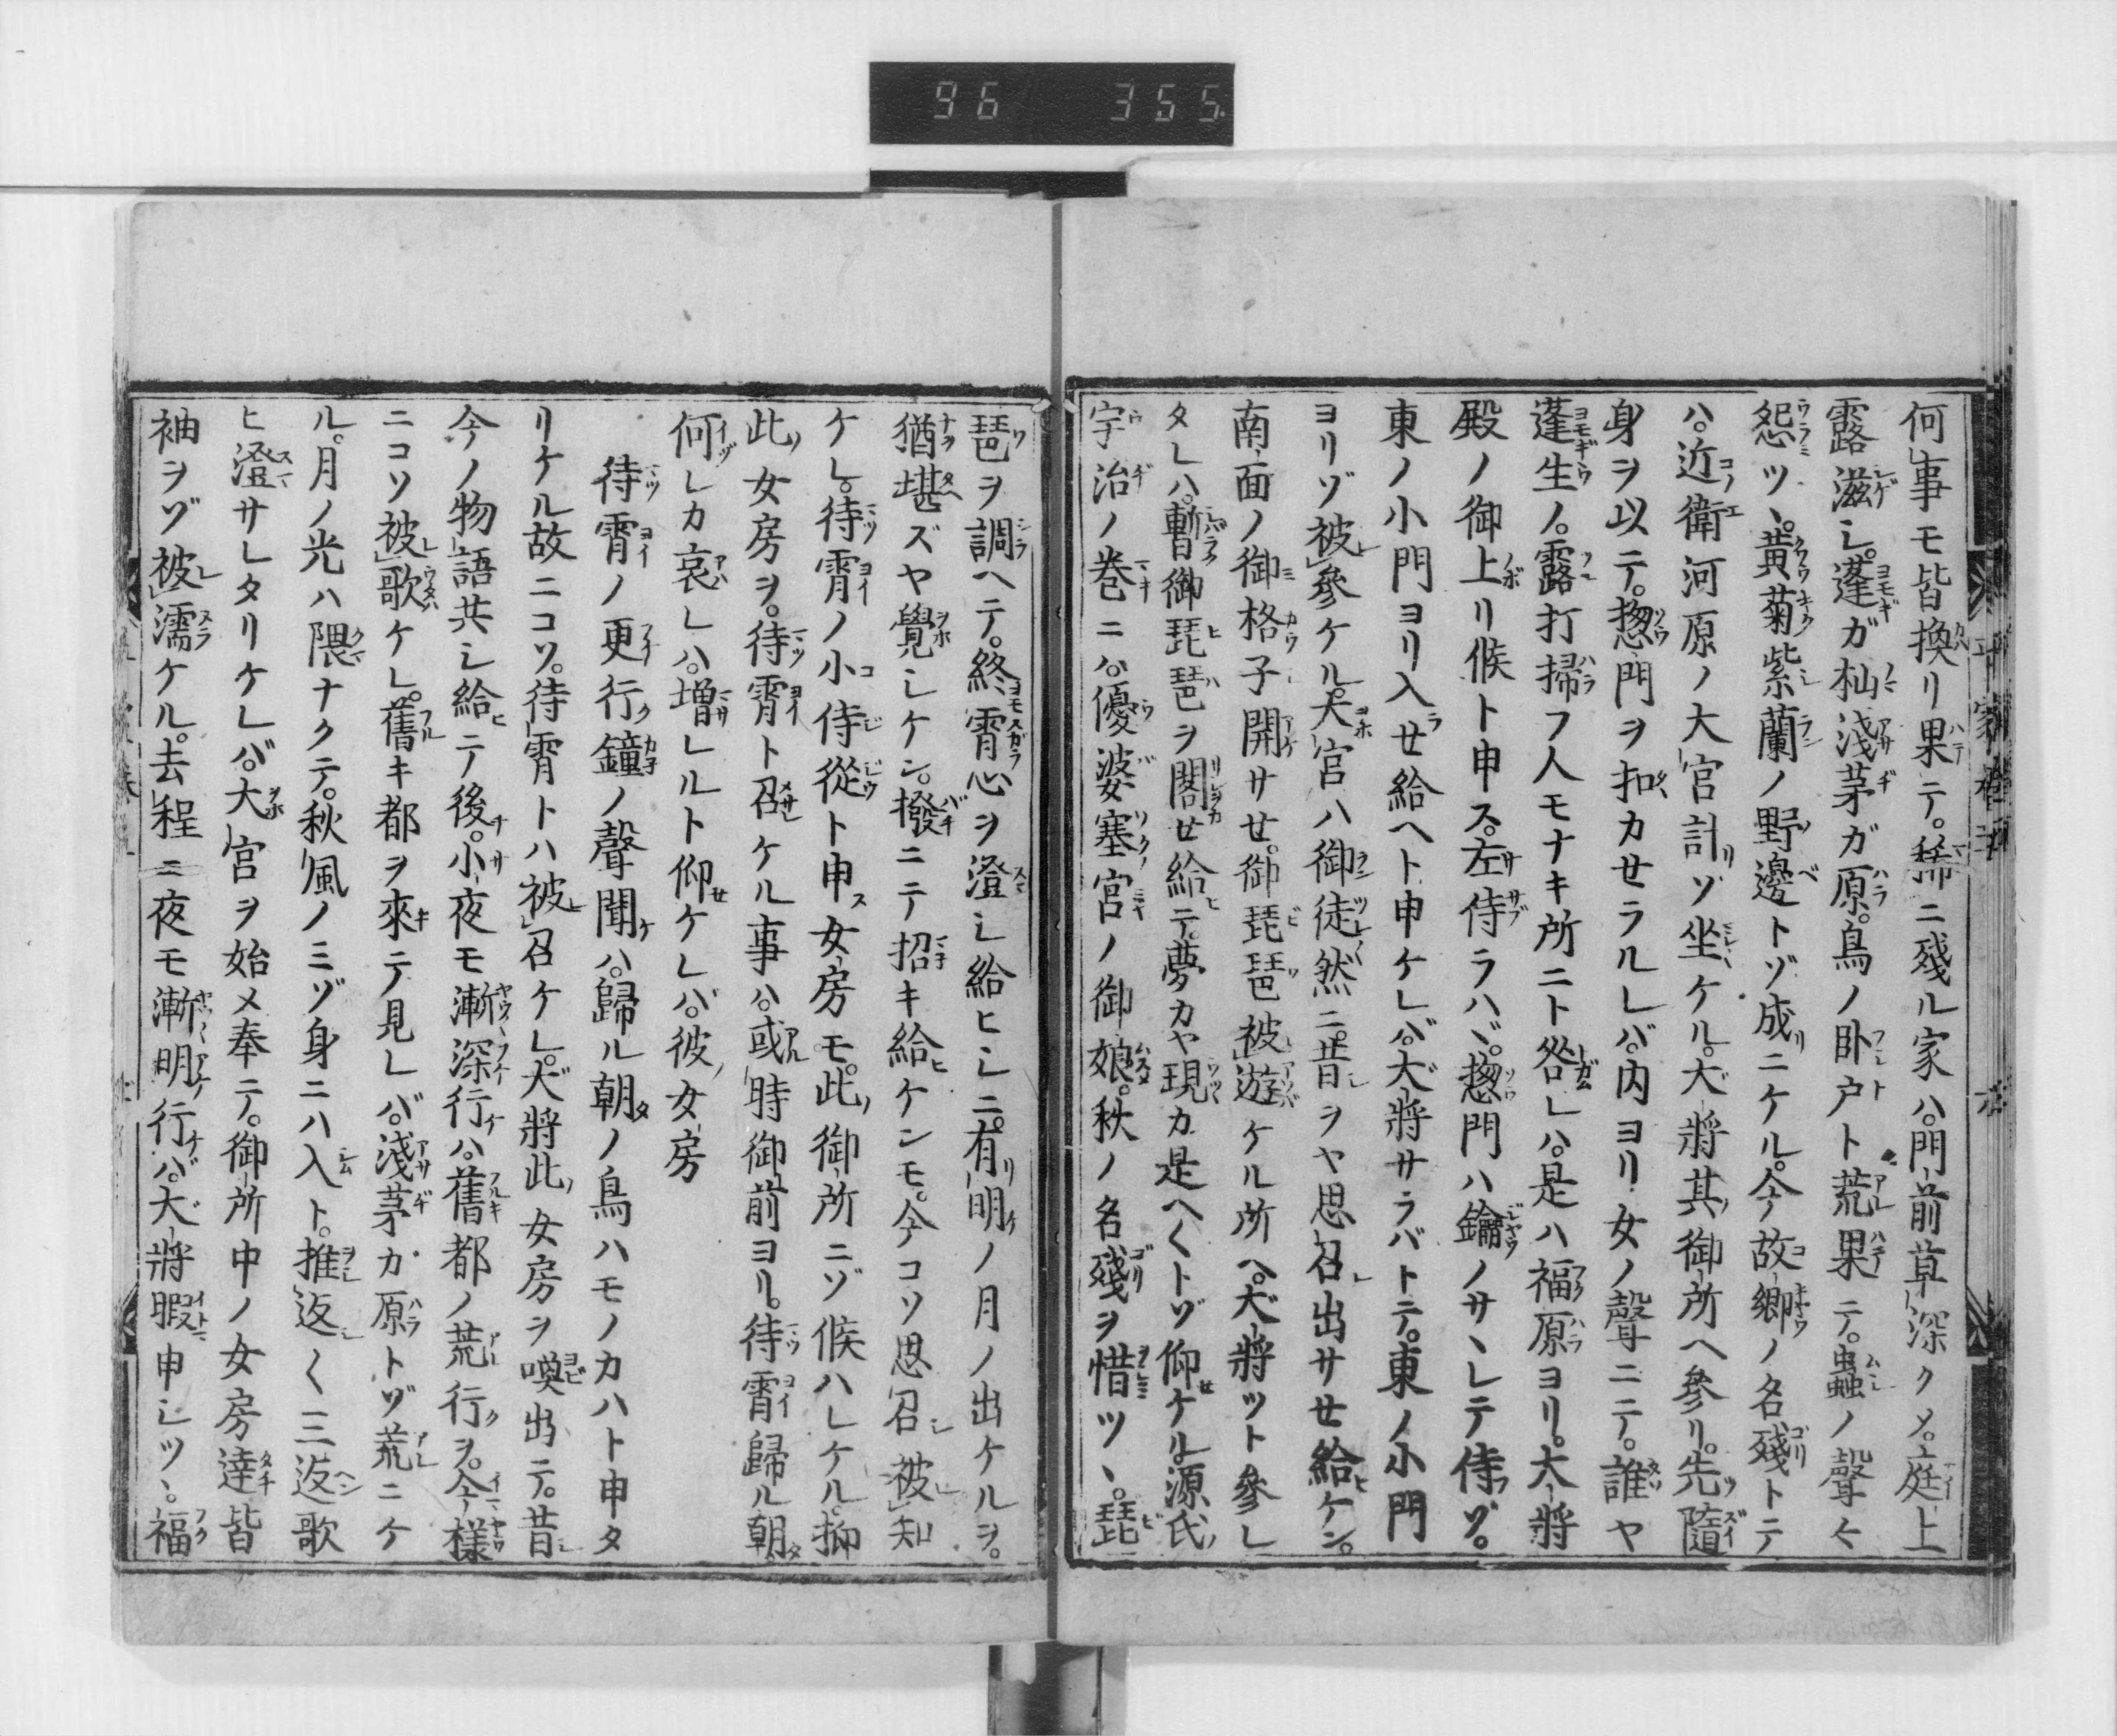 96 355
何事モ皆換リ果テ。稀ニ殘ル家ハ。門前草深クメ。庭上
露滋シ。蓬ガ杣淺茅ガ原。鳥ノ臥戸ト荒果テ。蟲ノ聲々
怨ツヽ。黄菊紫蘭ノ野邊トゾ成ニケル。今故郷ノ名殘トテ
ハ。近衛河原ノ大宮計ゾ坐ケル。大將其御所ヘ參リ。先隨
身ヲ以テ。惣門ヲ扣カセラルレバ。内ヨリ女ノ聲ニテ。誰ヤ
蓬生ノ。露打掃フ人モナキ所ニト咎レハ。是ハ福原ヨリ。大將
殿ノ御上リ候ト申ス。左侍ラハヾ。惣門ハ鑰ノサヽレテ侍ゾ。
東ノ小門ヨリ入セ給ヘト申ケレバ。大將サラバトテ。東ノ小門
ヨリゾ被參ケル。大宮ハ御徒然ニ。昔ヲヤ思召出サセ給ケン。
南面ノ御格子開サセ。御琵琶被遊ケル所ヘ。大將ツト參レ
タレハ。暫御琵琶ヲ閣セ給テ。夢カヤ現カ是ヘ〱トゾ仰ケル。源氏
宇治ノ巻ニハ。優婆塞宮ノ御娘。秋ノ名殘ヲ惜ツヽ。琵
琶ヲ調ヘテ。終霄心ヲ澄シ給ヒシニ。有明ノ月ノ出ケルヲ。
猶堪ズヤ覺シケン。撥ニテ招キ給ケンモ。今コソ思召被知
ケレ。待霄ノ小侍從ト申女房モ。此御所ニゾ候ハレケル。抑
此女房ヲ。待霄ト召ケル事ハ。或時御前ヨリ。待霄歸ル朝
何レカ哀レハ。増レルト仰ケレバ。彼女房
待霄ノ更行鐘ノ聲聞ハ。歸ル朝ノ鳥ハモノカハト申タ
リケル故ニコソ。待霄トハ被召ケレ。大將此女房ヲ喚出テ。昔
今ノ物語共シ給テ後。小夜モ漸深行ハ。舊都ノ荒行ヲ。今樣
ニコソ被歌ケレ。舊キ都ヲ來テ見レバ。淺茅カ原トゾ荒ニケ
ル。月ノ光ハ隈ナクテ。秋風ノミゾ身ニハ入ト。推返〱三返歌
ヒ澄サレタリケレバ。大宮ヲ始メ奉テ。御所中ノ女房達皆
袖ヲゾ被濡ケル。去程ニ夜モ漸明行ケバ。大將暇申シツヽ。福